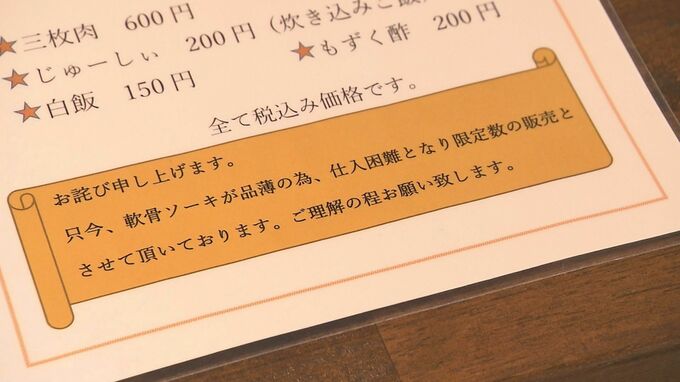 ★三枚肉 600円
★じゅーしぃ 200円（炊き込みご飯）
★もずく酢 200円
★白飯 150円
全て税込み価格です。
お詫び申し上げます。
只今、軟骨ソーキが品薄の為、仕入困難となり限定数の販売と
させて頂いております。ご理解の程お願い致します。